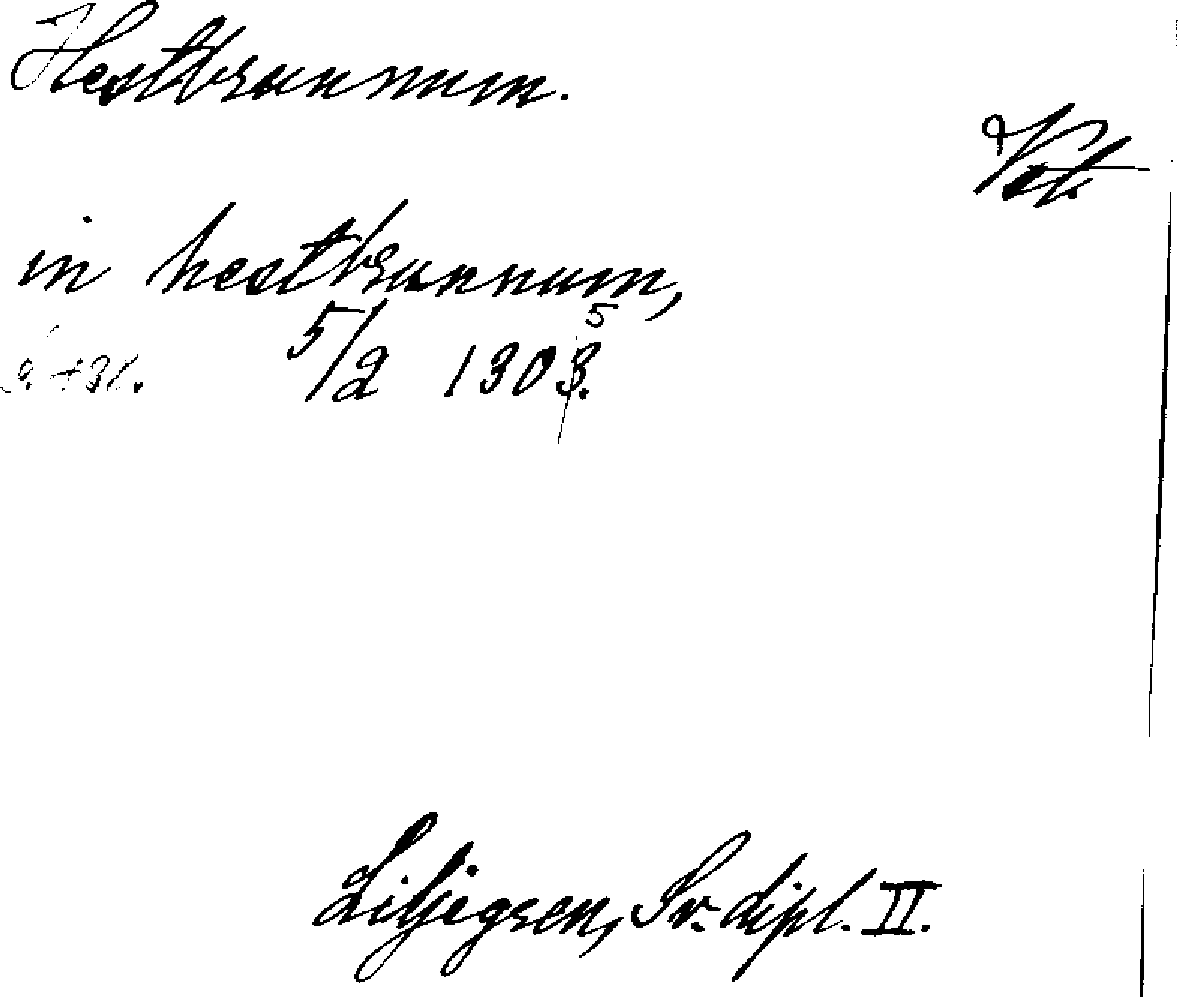 Hestbrunnum.
Vst.
in hestbrunnum,
5/2 1303. 5
Liljegren, Sv. dipl. II.